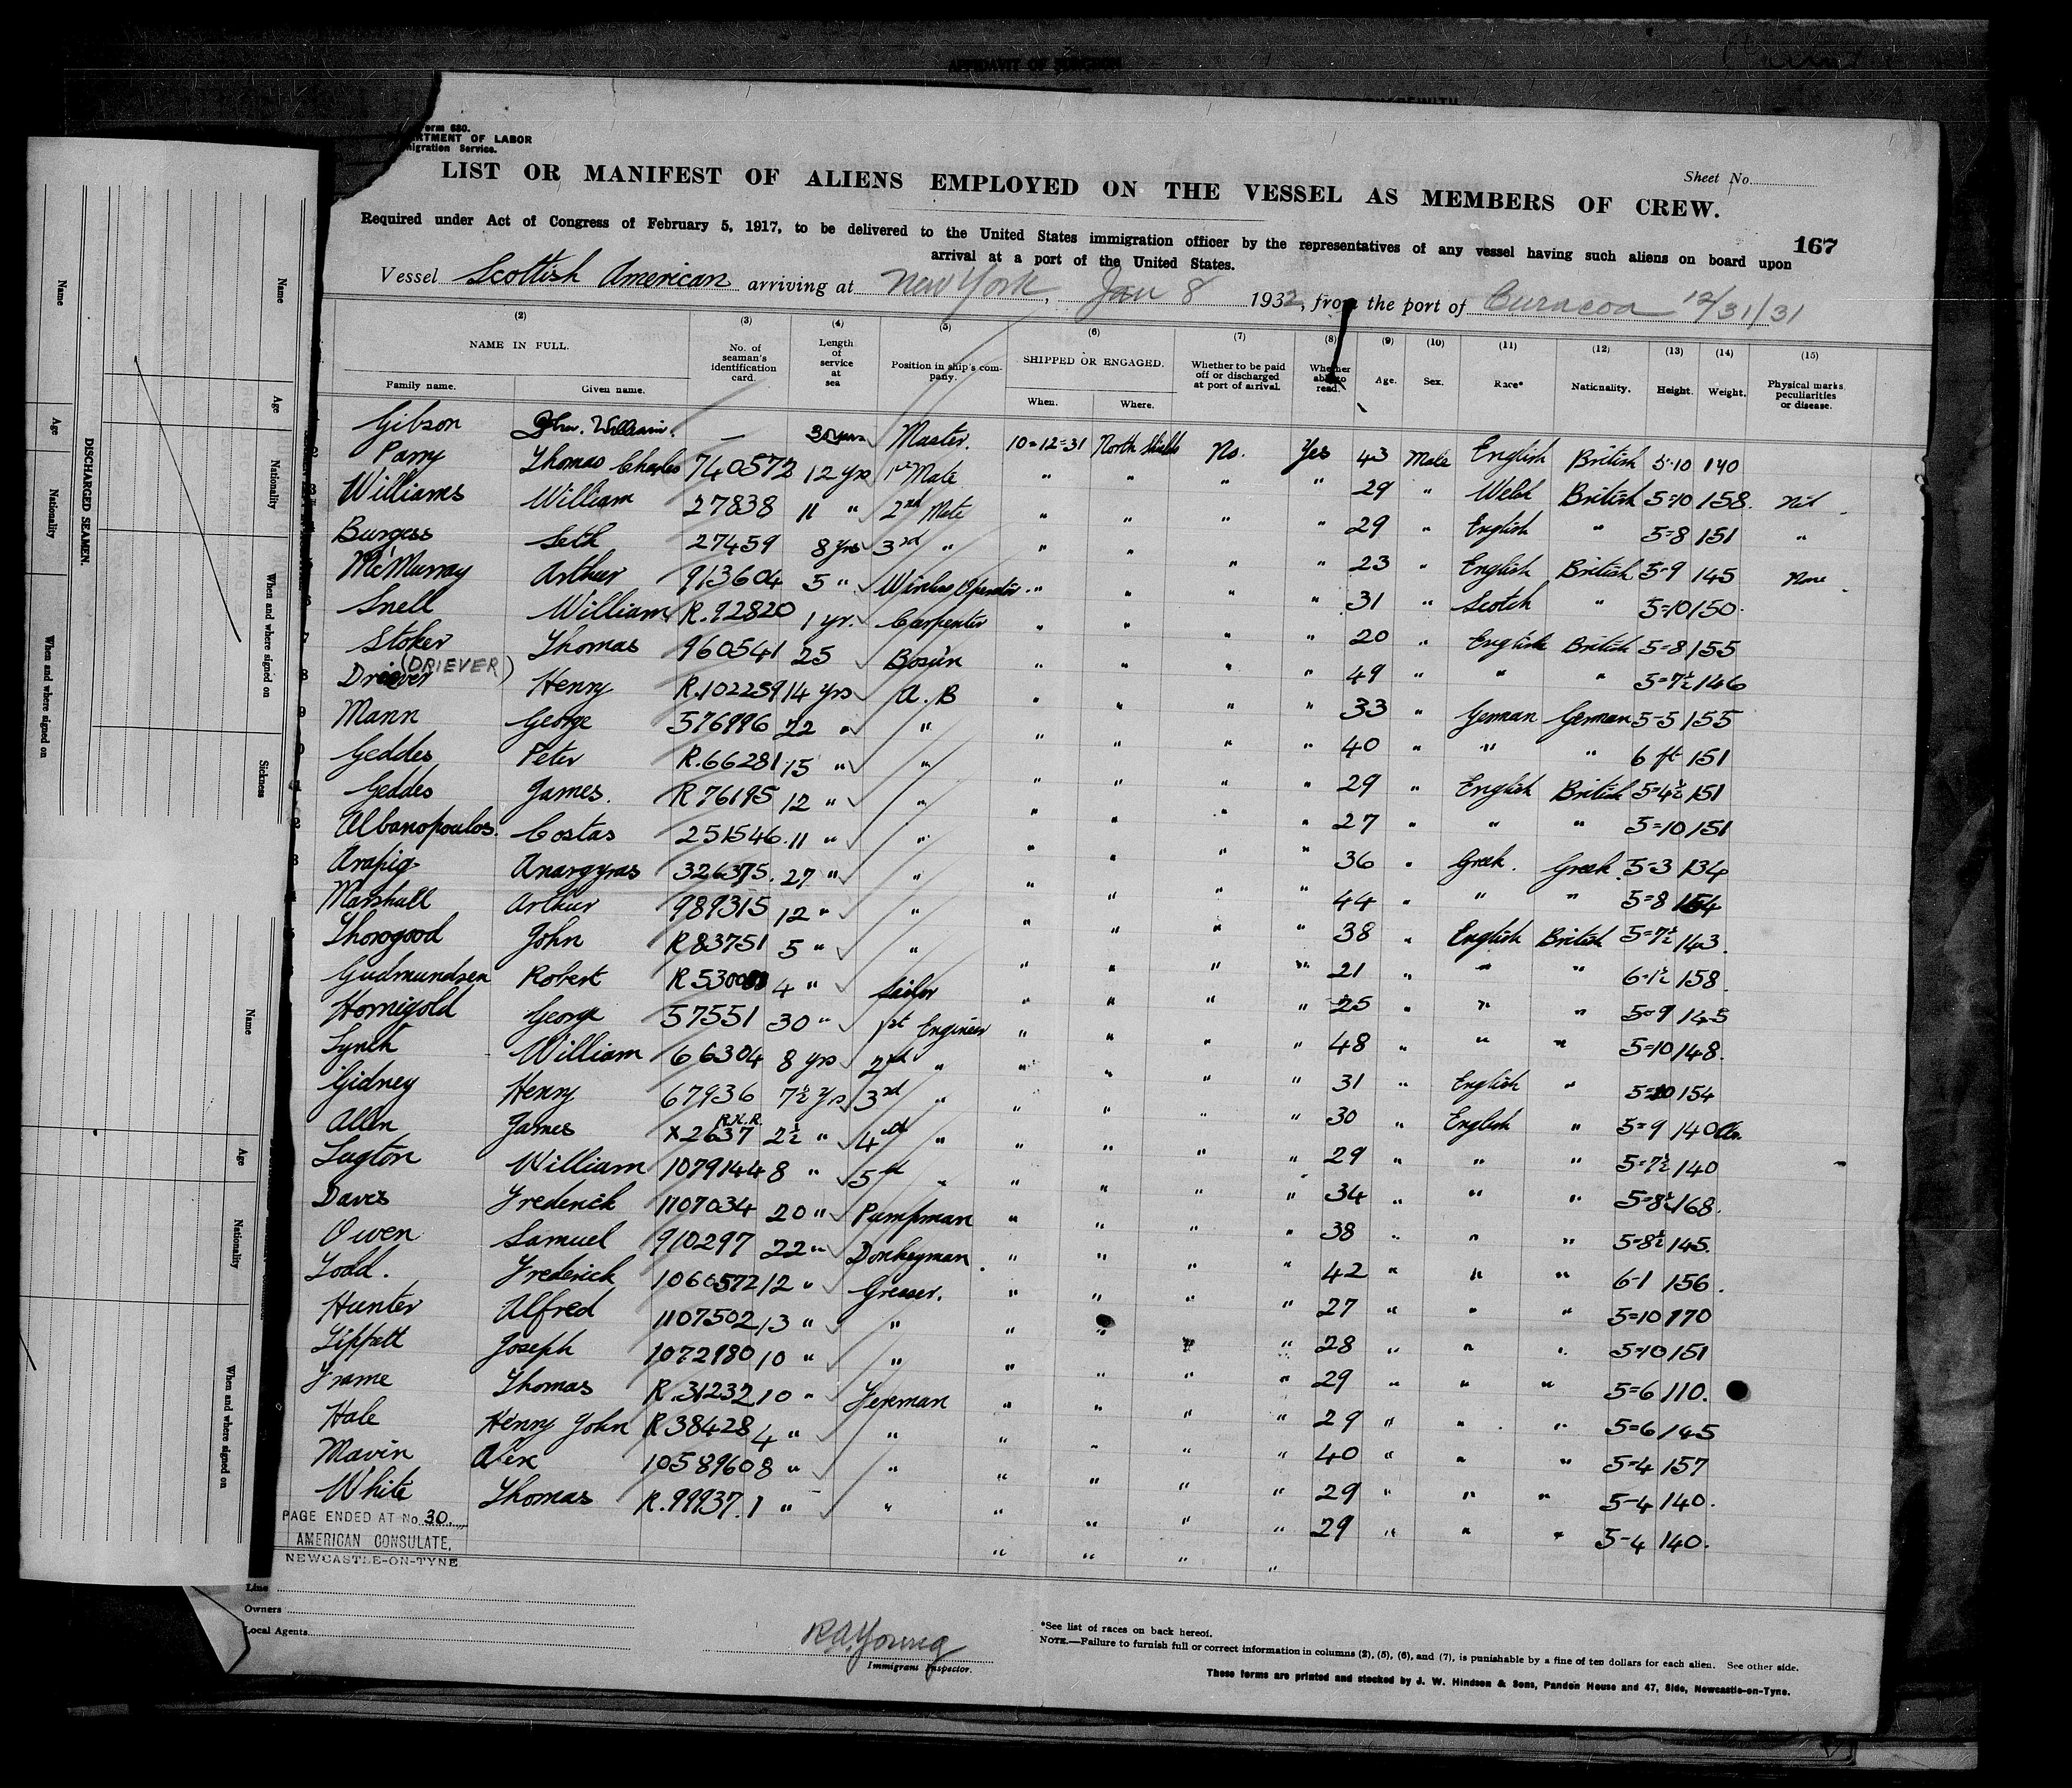 AFFIDAVIT OF SURGEON
Form 680.
DEPARTMENT OF LABOR
Immigration Service.
Sheet No.
LIST OR MANIFEST OF ALIENS EMPLOYED ON THE VESSEL AS MEMBERS OF CREW.
167
Required under Act of Congress of February 5, 1917, to be delivered to the United States immigration officer by the representatives of any vessel having such aliens on board upon
arrival at a port of the United States.
Vessel Scottish American arriving at New York, Jan 8 1932, from the port of Curacoa 12/31/31
(2) (3) (4) (5) (6) (7) (8) (9) (10) (11) (12) (13) (14) (15)
NAME IN FULL. No. of seaman's identification card. Length of service at sea Position in ship's company. SHIPPED OR ENGAGED. Whether to be paid off or discharged at port of arrival. Whether able to read. Age. Sex. Race* Nationality. Height. Weight. Physical marks, peculiarities or disease.
Family name. Given name. When. Where.
Gibson John William. — 30 yrs Master. 10=12=31 North Shields No. Yes 43 Male English British 5-10 140
Parry Thomas Charles 740572 12 yrs 1st Mate " " " " 29 " Welsh British 5=10 158. Nil
Williams William 27838 11 " 2nd Mate " " " " 29 " English " 5=8 151 "
Burgess Seth 27459 8 yrs 3rd " " " " " 23 " English British 5=9 145 None
McMurray Arthur 913604 5 " Wireless Operator " " " " 31 " Scotch " 5=10 150.
Snell William R.92820 1 yr. Carpenter " " " " 20 " English British 5=8 155
Stoker Thomas 960541 25 Bosun " " " " 49 " " " 5=7½ 146
(DRIEVER)
Driever Henry R.102259 14 yrs A.B " " " " 33 " German German 5-5 155
Mann George 576996 22 " " " " " " 40 " " " 6 ft 151
Geddes Peter R.66281 15 " " " " " " 29 " English British 5=4½ 151
Geddes James. R 76195 12 " " " " " " 27 " " " 5=10 151
Albanopoulos. Costas 251546. 11 " " " " " " 36 " Greek. Greek 5=3 134
Arapig Anargyras 326375. 27 " " " " " " 44 " " " 5=8 154
Marshall Arthur 989315 12 " " " " " " 38 " English British 5=7½ 143.
Thorogood John R 83751 5 " " " " " " 21 " " " 6-1½ 158.
Gudmundsen Robert 4 " Sailor " " " " 25 " " " 5=9 145
Hornigold George 57551 30 " 1st Engineer " " " " 48 " " " 5=10 148.
Lynch William 66304 8 yrs 2nd " " " " " 31 " English " 154
Gidney Henry 67936 7½ yrs 3rd " " " " " 30 " English " 5=9 140
Allen James R.N.R. X2637 2½ " 4th " " " " " 29 " " " 5=7½ 140
Lugton William 1079144 8 " 5th " " " " " 34 " " " 5=8½ 168.
Davis Frederick 1107034 20 " Pumpman " " " " 38 " " " 5=8½ 145.
Owen Samuel 910297 22 " Donkeyman. " " " " 42 " " " 6-1 156.
Todd. Frederick 1060572 12 " Greaser. " " " " 27 " " " 5=10 170
Hunter Alfred 1107502 13 " " " " " " 28 " " " 5=10 151
Lippett Joseph 1072980 10 " " " " " " 29 " " " 5=6 110.
Frame Thomas R.31232 10 " Fireman " " " " 29 " " " 5=6 145
Hale Henry John R 38428 4 " " " " " " 40 " " " 5=4 157
Mavin Alex 1058960 8 " " " " " " 29 " " " 5-4 140.
White Thomas R.99937. 1 " " " " " " 29 " " " 5-4 140.
PAGE ENDED AT No. 30.
AMERICAN CONSULATE,
NEWCASTLE-ON-TYNE
Line
Owners
Local Agents
R A Young
Immigrant Inspector.
*See list of races on back hereof.
NOTE.—Failure to furnish full or correct information in columns (2), (5), (6), and (7), is punishable by a fine of ten dollars for each alien. See other side.
These forms are printed and stocked by J. W. Hindson & Sons, Pandon House and 47, Side, Newcastle-on-Tyne.
DISCHARGED SEAMEN.
Name Age Nationality When and where signed on
Name Age Nationality When and where signed on Sickness
Name Age Nationality When and where signed on